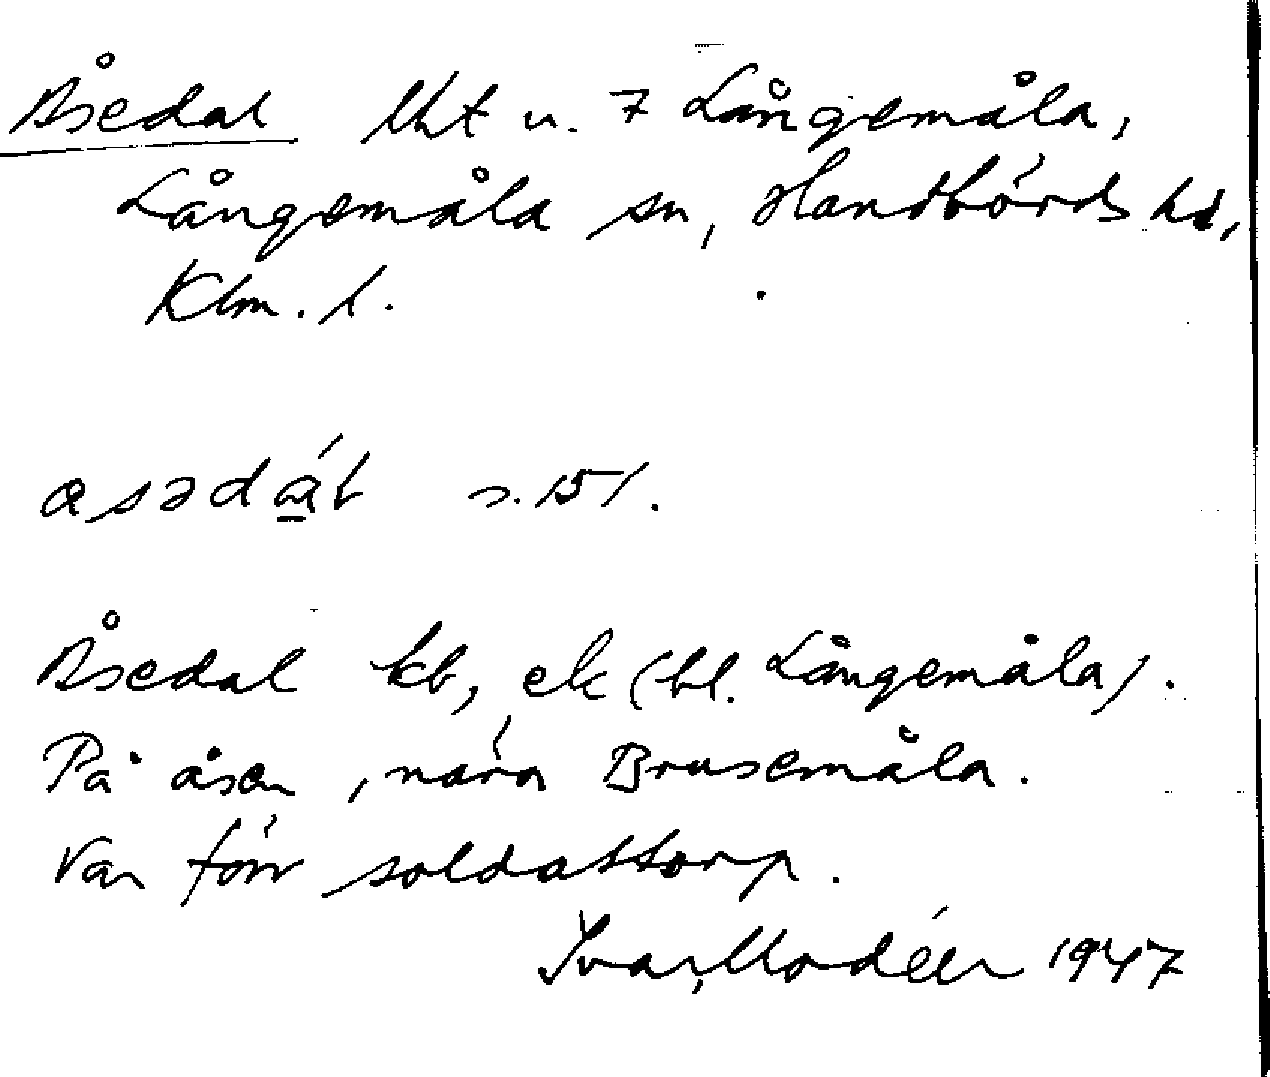 Åsedal lht u. 7 Långemåla,
Långemåla sn, Handbörds hd,
Klm. l.
asədá̱l s. 151.
Åsedal kb, ek (bl. Långemåla).
På åsen, nära Brusemåla.
Var förr soldattorp.
Ivar Modéer 1947